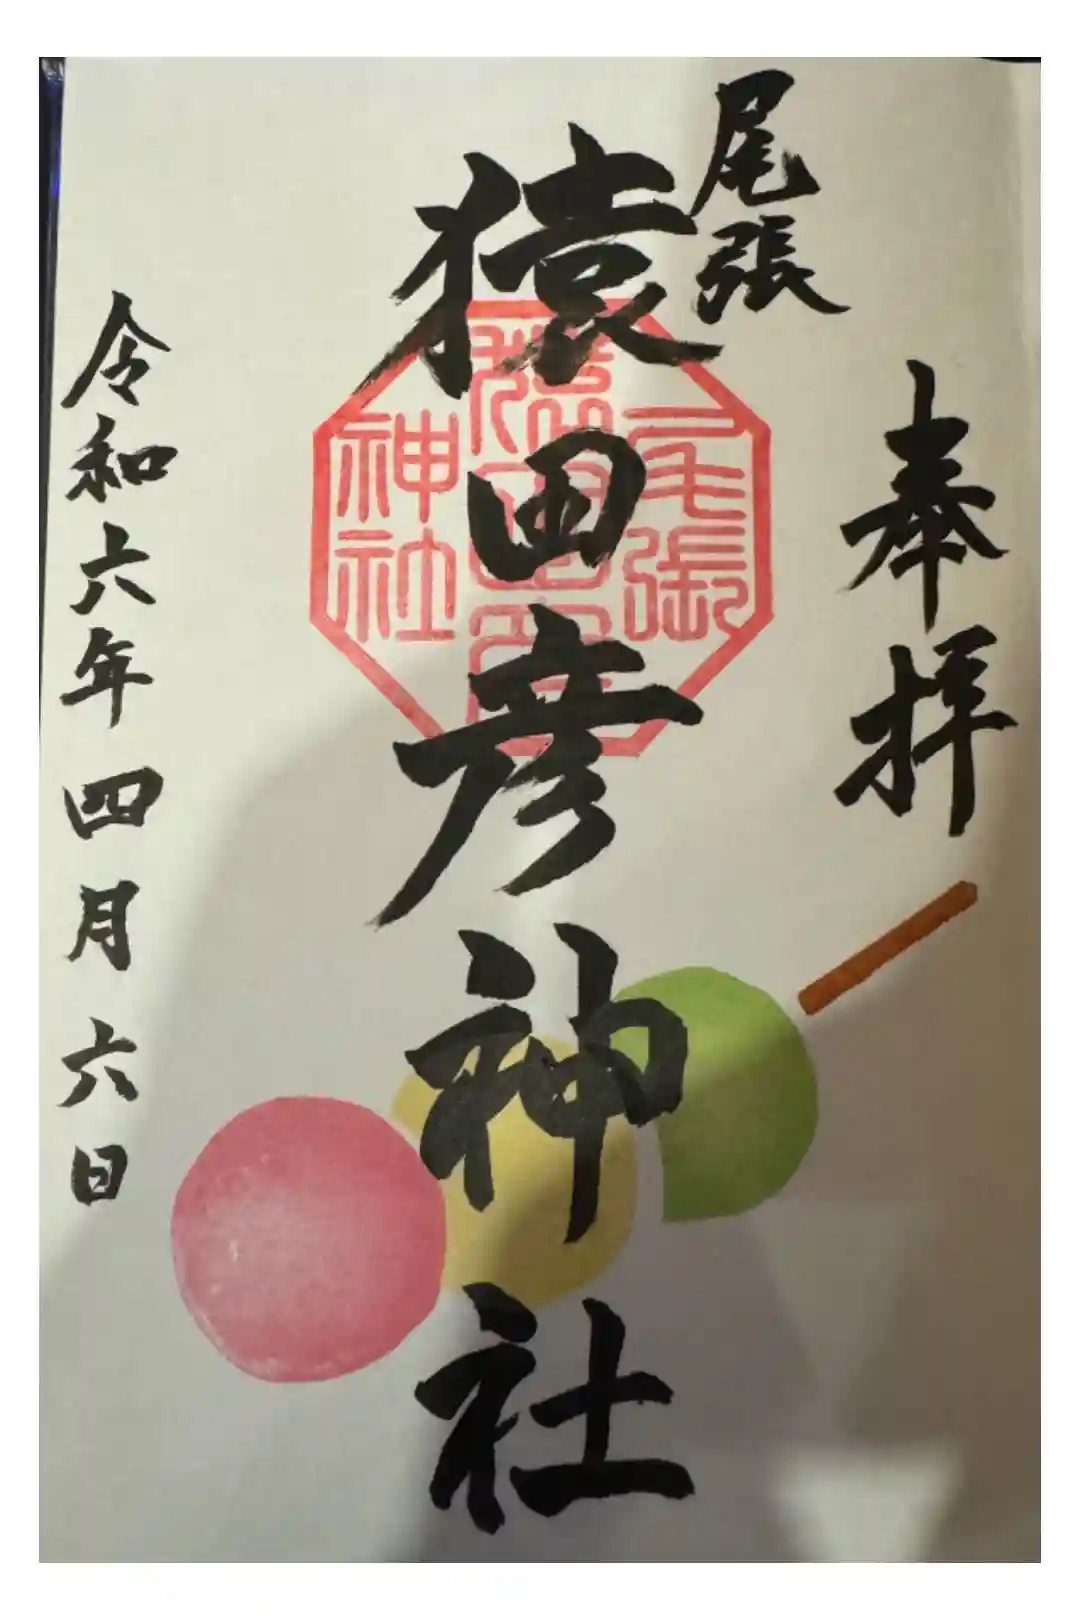 奉拝
尾張
猿田彦神社
尾張
猿田彦
神社
令和六年四月六日